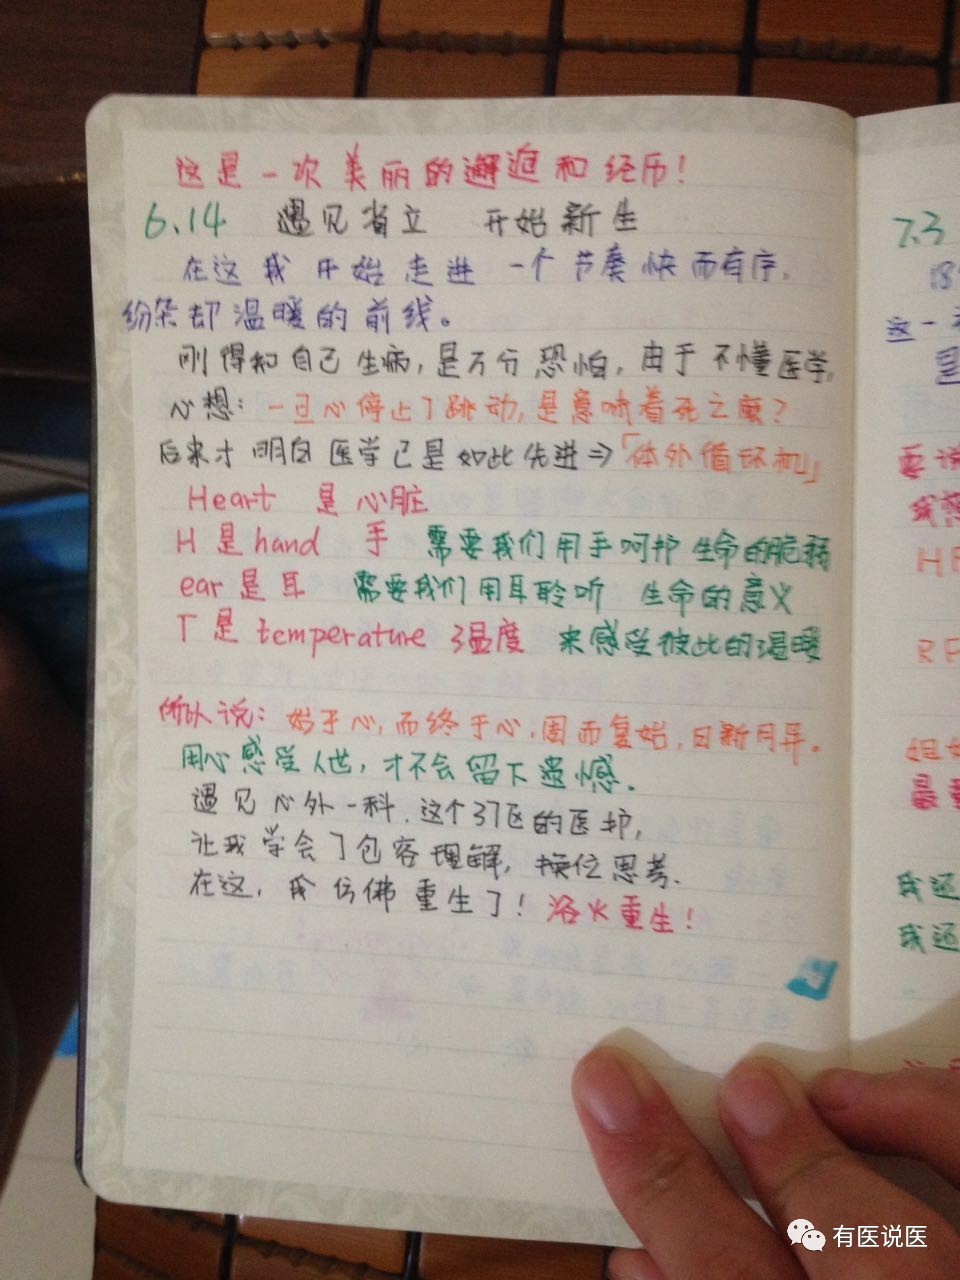 这是一次美丽的邂逅和经历!
6.14 遇见省立 开始新生
在这我开始走进一个节奏快而有序,
纷杂却温暖的前线。
刚得知自己生病,是万分恐怕,由于不懂医学,
心想:一旦心停止了跳动,是意味着死亡么?
后来才明白医学已是如此先进⇒「体外循环机」
Heart 是心脏
H是hand 手 需要我们用手呵护生命的脆弱
ear是耳 需要我们用耳聆听 生命的意义
T是temperature 温度 来感受彼此的温暖
所以说:始于心,而终于心,周而复始,日新月异。
用心感受人世,才不会留下遗憾.
遇见心外一科.这个37区的医护,
让我学会了包容理解,换位思考.
在这,我仿佛重生了!浴火重生!
7.3
这一
要说
我想
H
R
姐
最
我还
我还
有医说医